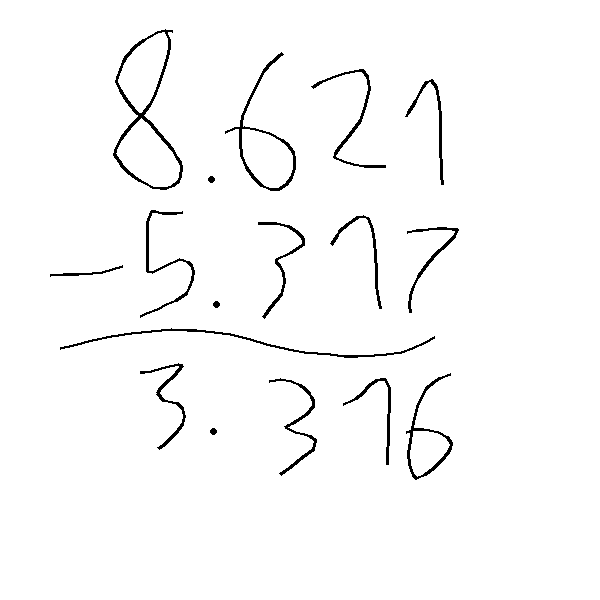 8.621
-5.317
3.316